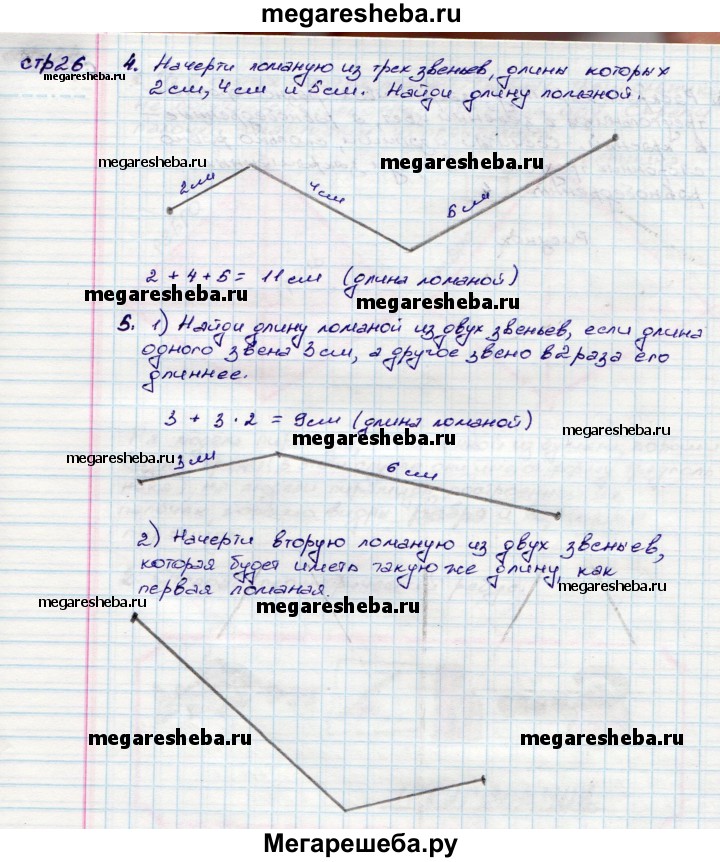 megaresheba.ru
стр26 4. Начерти ломаную из трех звеньев, длины которых
megaresheba.ru
2 см, 4 см и 5 см. Найди длину ломаной.
megaresheba.ru megaresheba.ru
2 см 4 см 6 см
2 + 4 + 5 = 11 см (длина ломаной)
megaresheba.ru megaresheba.ru
5. 1) Найди длину ломаной из двух звеньев, если длина
одного звена 3 см, а другое звено в 2 раза его
длиннее.
3 + 3 · 2 = 9 см (длина ломаной)
megaresheba.ru megaresheba.ru
megaresheba.ru
3 см 6 см
2) Начерти вторую ломаную из двух звеньев,
которая будет иметь такую же длину, как
первая ломаная.
megaresheba.ru megaresheba.ru megaresheba.ru
megaresheba.ru megaresheba.ru
Мегарешеба.ру